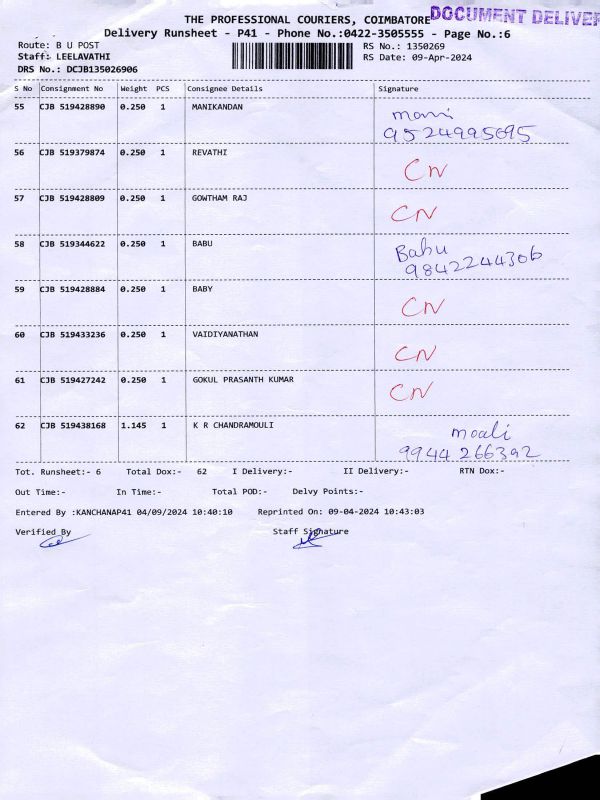 THE PROFESSIONAL COURIERS, COIMBATORE
DOCUMENT DELIVER
Delivery Runsheet - P41 - Phone No.:0422-3505555 - Page No.:6
Route: B U POST
RS No.: 1350269
Staff: LEELAVATHI
RS Date: 09-Apr-2024
DRS No.: DCJB135026906
S No Consignment No Weight PCS Consignee Details Signature
55 CJB 519428890 0.250 1 MANIKANDAN
mani
9524995695
56 CJB 519379874 0.250 1 REVATHI
CN
57 CJB 519428809 0.250 1 GOWTHAM RAJ
CN
58 CJB 519344622 0.250 1 BABU
Babu
9842244306
59 CJB 519428884 0.250 1 BABY
CN
60 CJB 519433236 0.250 1 VAIDIYANATHAN
CN
61 CJB 519427242 0.250 1 GOKUL PRASANTH KUMAR
CN
62 CJB 519438168 1.145 1 K R CHANDRAMOULI
9944266392
Tot. Runsheet:- 6 Total Dox:- 62 I Delivery:- II Delivery:- RTN Dox:-
Out Time:- In Time:- Total POD:- Delvy Points:-
Entered By :KANCHANAP41 04/09/2024 10:40:10 Reprinted On: 09-04-2024 10:43:03
Verified By Staff Signature